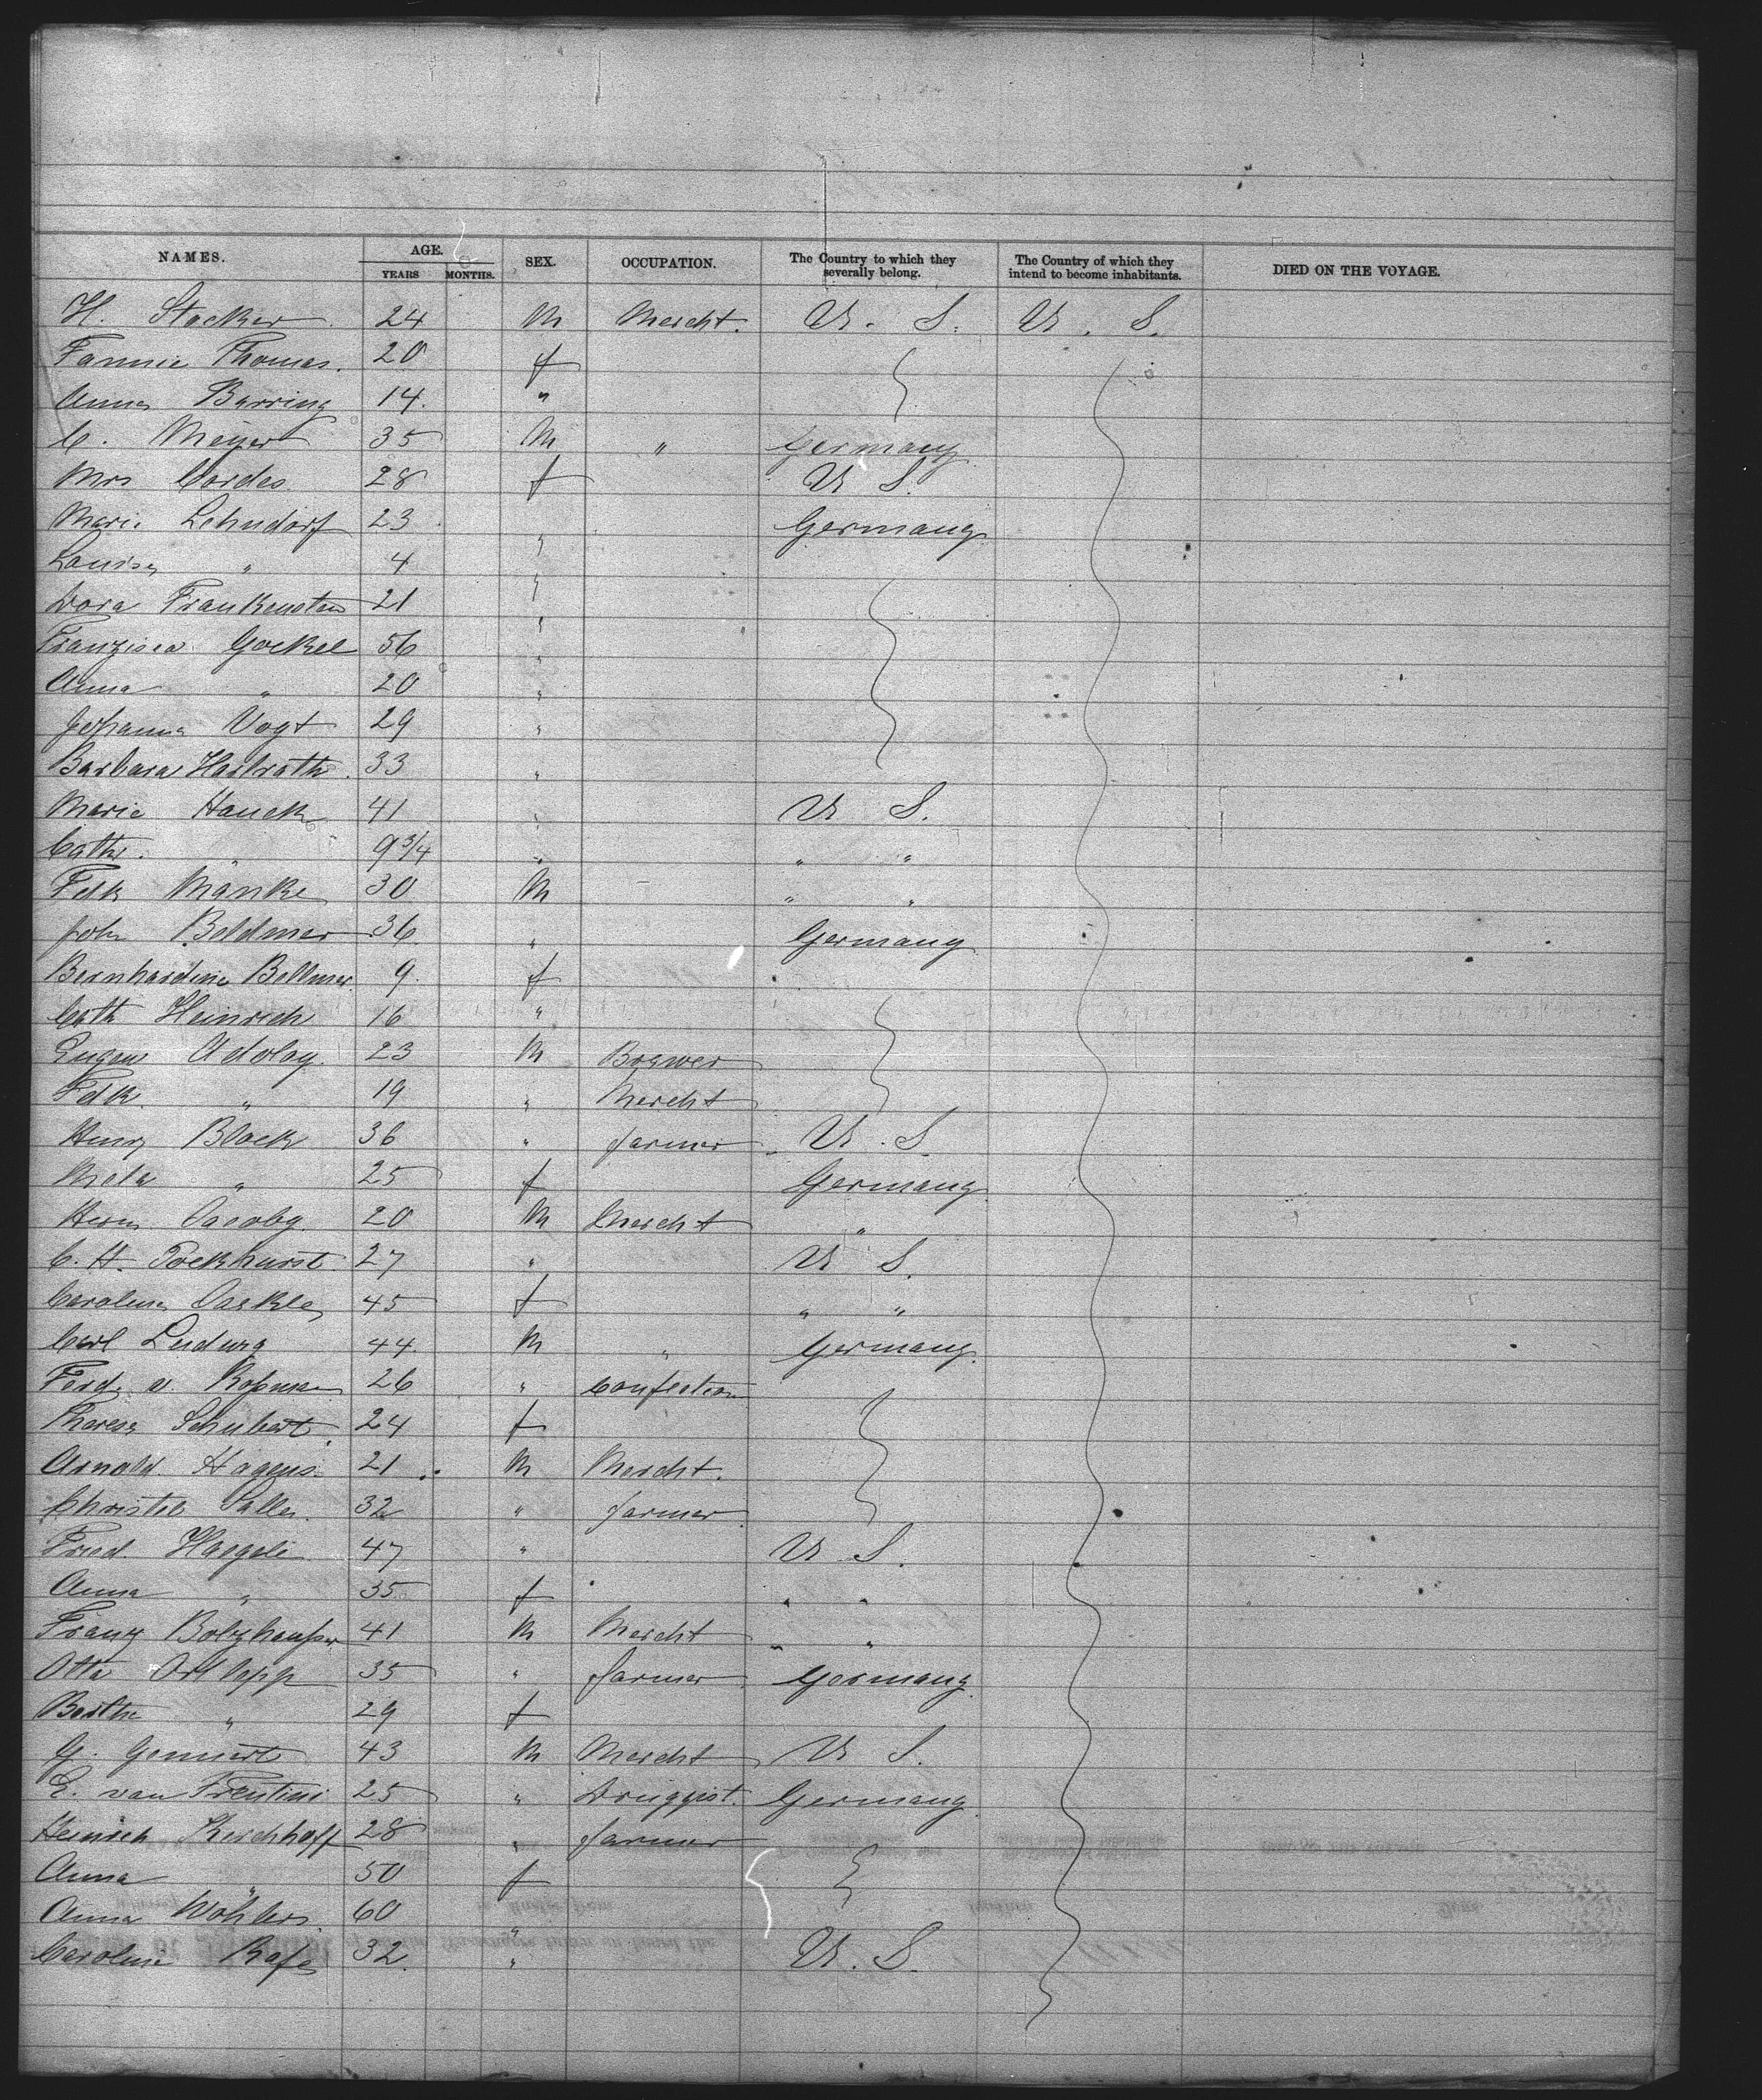 NAMES. AGE. YEARS MONTHS. SEX. OCCUPATION. The Country to which they severally belong. The Country of which they intend to become inhabitants. DIED ON THE VOYAGE.
H. Stocker 24 M Mercht. U. S. U. S.
Fannie Thomas. 20 f
Anna Barring 14. "
C. Meyer 35 M " Germany
Mrs Cordes 28 f U S.
Marie Lehndorf 23 " Germany
Louisa " 4 "
Dora Frankenstein 21 "
Franzisca Gockel 56 "
Anna " 20 "
Johanna Vogt 29 "
Barbara Hartrath. 33 "
Marie Hauck 41 " U S.
Cath. " 9 3/4 " " "
Fdk Manke 30 M " "
John Beldmer 36. " Germany
Bernhardine Bellmer. 9. f
Cath Heinrich 16 "
Eugen Adolay 23 M Brewer
Fdk. " 19 " Mercht
Henry Block 36 " farmer U. S.
Meta " 25 f Germany
Herm Jacoby. 20 M Mercht "
C. H. Pockhurst 27 " U S.
Caroline 45 f " "
Carl Ludwig 44. M " Germany.
Ferd. v. 26 " Confection
Theresa Schubert. 24 f
Arnold Hagens. 21 M Mercht.
Christel Saller. 32 " farmer
Fried. Haegele 47 " U S.
Anna " 35 f " "
Franz 41 M Mercht " "
Otto Ortlepp 35 " farmer Germany
Berth " 29 f
G. Gennert 43 M Mercht U S.
E. van Trentini 25 " Druggist. Germany
Heinrich Kirchhoff 28 " farmer
Anna " 50 f
Anna Wöhlers 60 "
Caroline 32. " U. S.